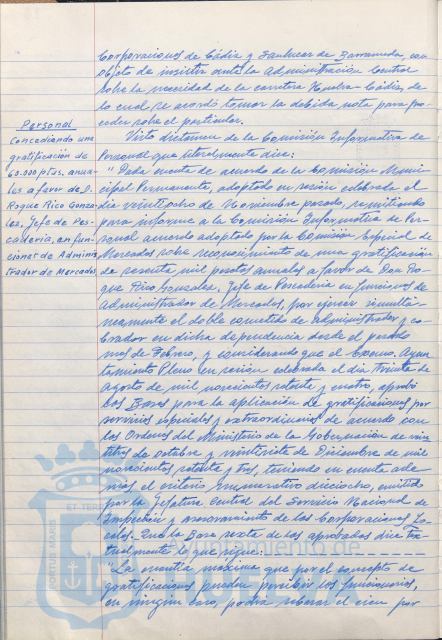 Corporaciones de Cádiz y Sanlucar de Barrameda, con
objeto de insistir ante la Administración Central
sobre la necesidad de la carretera Huelva-Cádiz, de
lo cual se acordó tomar la debida nota para pro-
ceder sobre el particular.
Personal
Concediendo una
gratificación de
60.000 ptas. anua-
les a favor de D.
Roque Rico Gonza-
lez, Jefe de Pes-
caderia, en fun-
ciones de Adminis-
trador de Mercados
Visto dictamen de la Comisión Informativa de
Personal que literalmente dice:
"Dada cuenta de acuerdo de la Comisión Muni-
cipal Permanente, adoptado en sesión celebrada el
día veintiocho de Noviembre pasado, remitiendo
para informe a la Comisión Informativa de Per-
sonal acuerdo adoptado por la Comisión Especial de
Mercados sobre reconocimiento de una gratificación
de sesenta mil pesetas anuales a favor de Don Ro-
que Rico Gonzalez, Jefe de Pescaderia en funciones de
Administrador de Mercados, por ejercer simultá-
neamente el doble cometido de administrador y co-
brador en dicha dependencia desde el pasado
mes de Febrero, y considerando que el Excmo. Ayun-
tamiento Pleno en sesión celebrada el día treinta de
Agosto de mil novecientos setenta y cuatro, aprobó
las Bases para la aplicación de gratificaciones por
servicios especiales y extraordinarios de acuerdo con
las Ordenes del Ministerio de la Gobernación de vein-
titres de octubre y veintisiete de Diciembre de mil
novecientos setenta y tres, teniendo en cuenta ade-
más el criterio enumerativo dieciocho, emitido
por la Jefatura Central del Servicio Nacional de
Inspección y asesoramiento de las Corporaciones Lo-
cales. Que la Base sexta de las aprobadas dice tex-
tualmente lo que sigue:
"La cuantía máxima que por el concepto de
gratificaciones puedan percibir los funcionarios,
en ningún caso, podrá rebasar el cien por
PORTUS MARIS
ET TERR
Ayuntamiento de
HUELVA